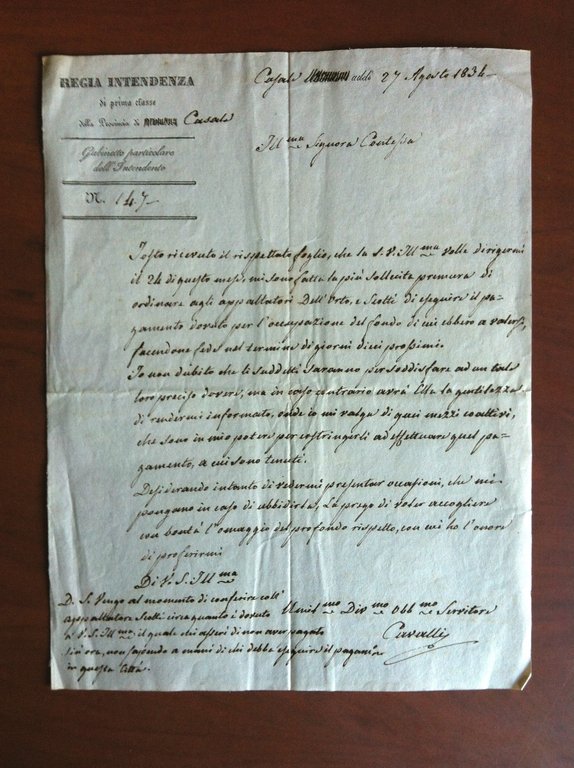 REGIA INTENDENZA
di prima classe
della Provincia di Casale
Gabinetto particolare
dell'Intendente
N. 147
Casale addì 27 Agosto 1834
Ill.ma Signora Contessa
Tosto ricevuto il rispettato foglio, che la S. V. Ill.ma volle dirigermi
il 24 di questo mese, mi sono fatta la più sollecita premura di
ordinare agli appaltatori Dell'Orto, e Scotti di eseguire il pa-
gamento dovuto per l'occupazione del fondo di cui ebbero a valersi,
facendone fede nel termine di giorni dieci prossimi.
Io non dubito che li suddetti saranno per soddisfare ad un tale
loro preciso dovere, ma in caso contrario avrà Ella la gentilezza
di rendermi informato, onde io mi valga di quei mezzi coattivi,
che sono in mio potere per costringerli ad effettuare quel pa-
gamento, a cui sono tenuti.
Desiderando intanto di vedermi presentar occasioni, che mi
pongano in caso di ubbidirla, La prego di voler accogliere
con bontà l'omaggio del profondo rispetto, con cui ho l'onore
di proferirmi
Di V. S. Ill.ma
Umil.mo Div.mo Obb.mo Servitore
Cavalli
D. S. Vengo al momento di conferire coll'
appaltatore Scotti circa quanto è dovuto
a V. S. Ill.ma, il quale ch'asserì di non aver pagato
sin ora, non sapendo a mani di chi debba eseguire il pagam.to
in questa Città.